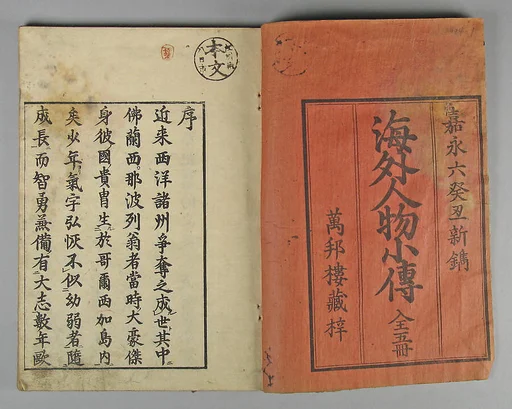 嘉永六癸丑新鐫
海外人物小傳
全五冊
萬邦樓藏梓
本文
序
近来西洋諸州爭奪之成世其中
佛蘭西那波列翁者當時大豪傑
身彼國貴冑生於哥爾西加島内
矣少年氣宇弘恢不似幼弱者随
成長而智勇兼備有大志數年歐